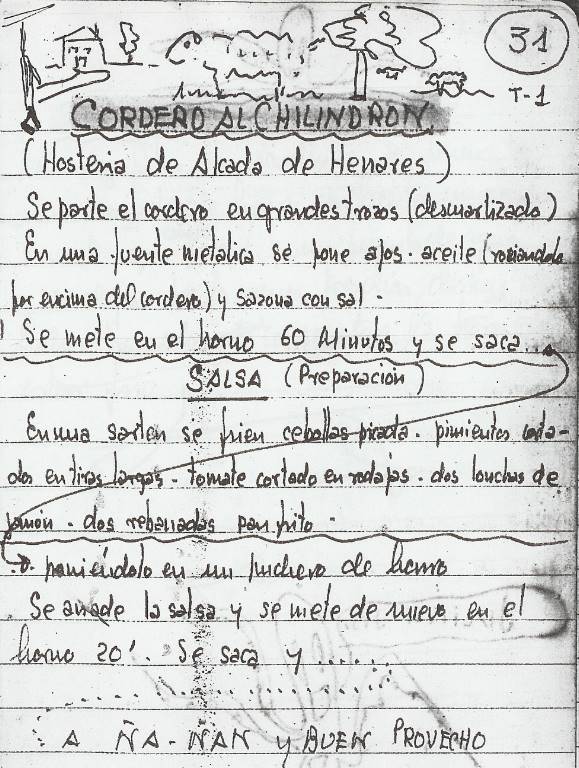 31
T-1
CORDERO AL CHILINDRON
(Hosteria de Alcada de Henares)
Se parte el cordero en grandes trozos (descuartizado)
En una fuente metalica se pone ajos. aceite (rociandola
por encima del cordero) y sazona con sal.
Se mete en el horno 60 Minutos y se saca...
SALSA (Preparación)
En una sarten se frien cebollas picada. pimientos corta-
dos en tiras largas. tomate cortado en rodajas. dos lonchas de
jamón. dos rebanadas pan frito.
poniéndolo en un puchero de barro
Se anade la salsa y se mete de nuevo en el
horno 20'. Se saca y ......
A ÑA-ÑAN y BUEN PROVECHO